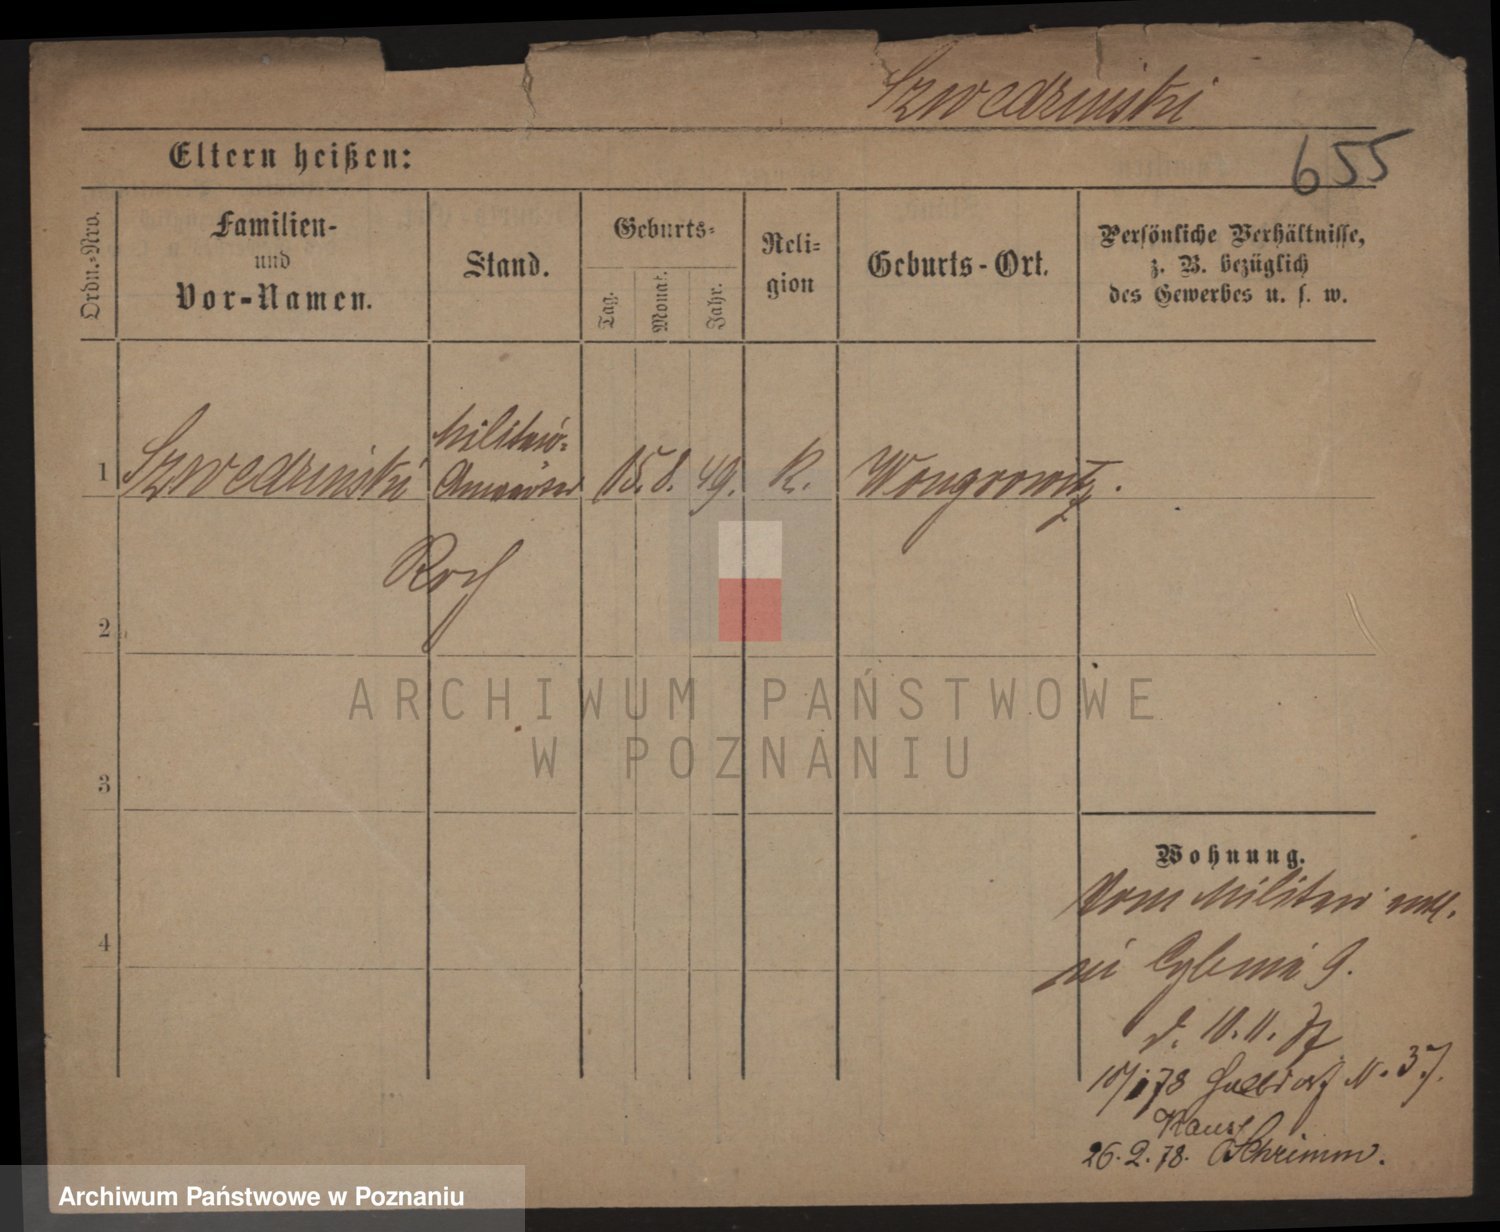 Szwedzinski
655
Eltern heißen:
Ordn.-Nro.
Familien-
und
Vor-Namen.
Stand.
Geburts-
Tag.
Monat.
Jahr.
Reli-
gion
Geburts-Ort.
Persönliche Verhältnisse,
z. B. bezüglich
des Gewerbes u. s. w.
Militär-
1 Szwedzinski Anwärter 15. 8. 49. K. Wongrowitz.
Roch
2
ARCHIWUM PAŃSTWOWE
W POZNANIU
3
Wohnung.
Vom Militair
4
Cybina 9.
d. 10. 11. 77
10/1 78 Halbdorf N. 37.
26.2.78. Schrimm.
Archiwum Państwowe w Poznaniu